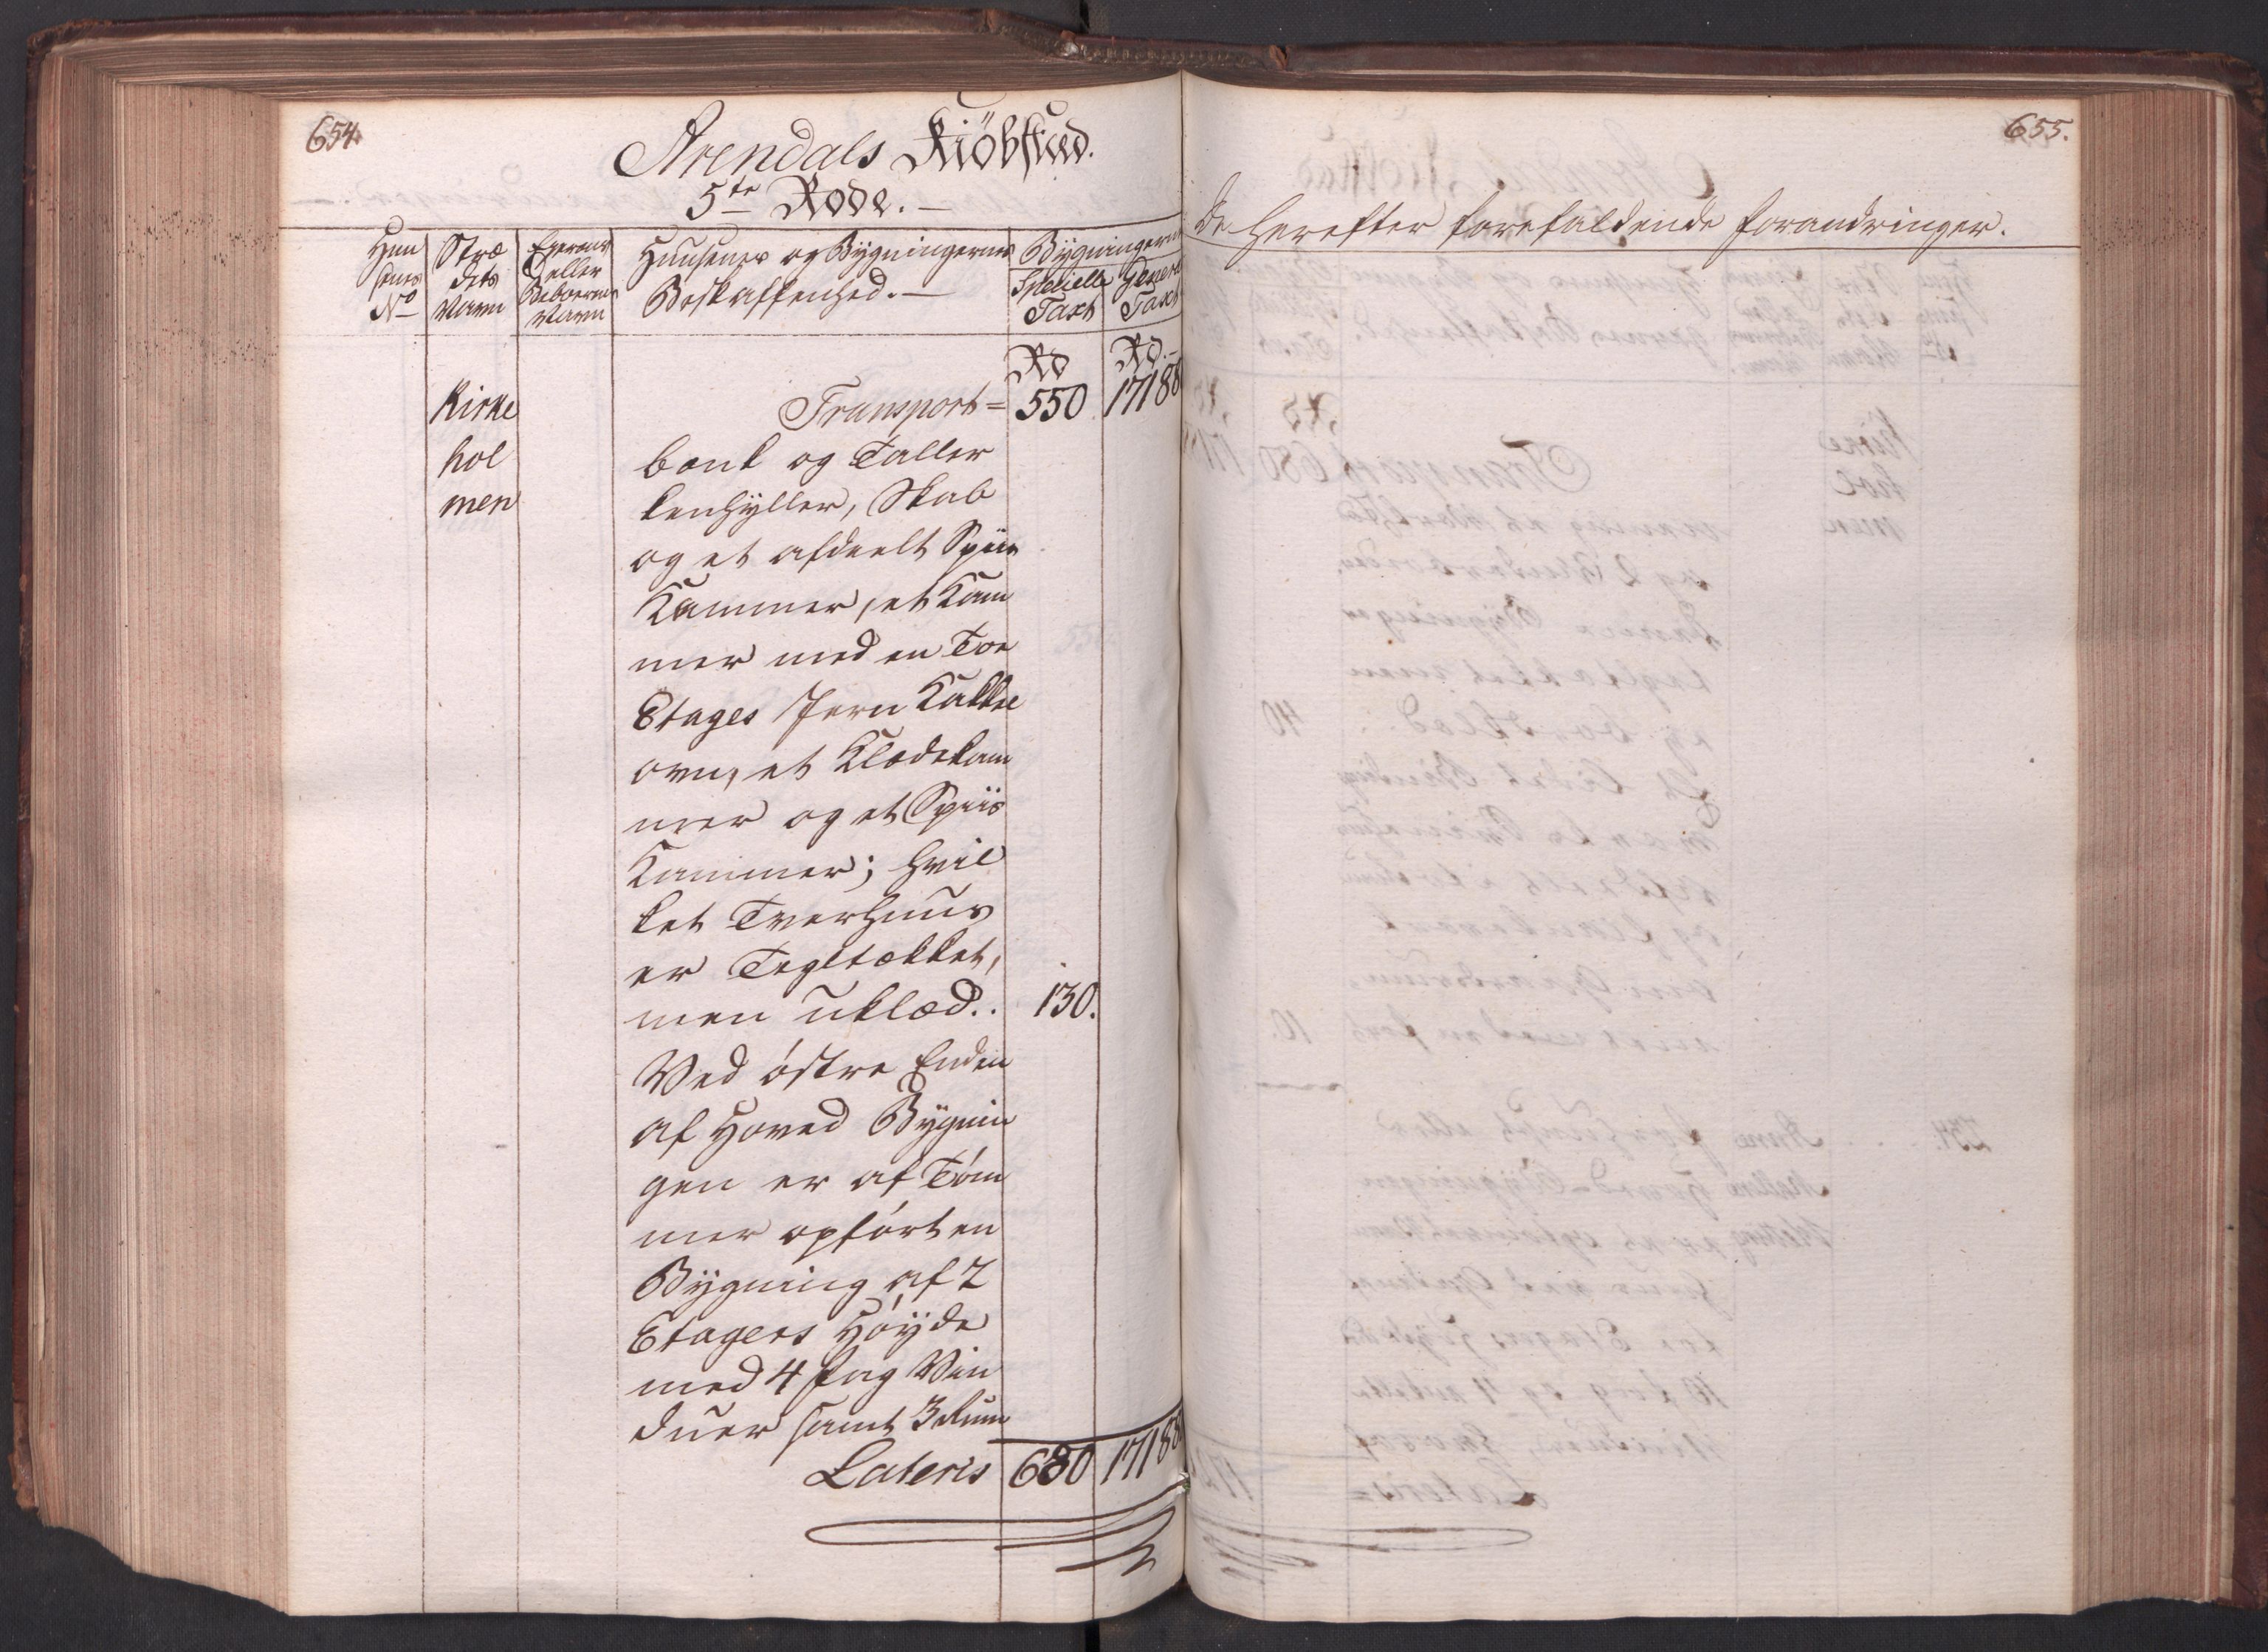 654.
Arendals Kiöbstæd.
5te Rode. —
Huu
senes
No
Stræ
dets
Navn
Eyerens
eller
Beboernes
Navn
Huusenes og Bÿgningernes
Beskaffenhed. —
Bÿgningernes
Specielle
Taxt
General
Taxt
Rd
Rd. —
Kirke
hol
men
Transport = 550 17188
bænk og Taller
kenhÿller, Skab
og et afdeelt Spiis
Kammer, et Kam
mer med en Toe
Etages Jern Kakkel
ovn, et Klædekam
mer og et Spiis
Kammer; hvil
ket Tverhuus
er Tegltækket,
men uklæd.. 130.
Ved östre Enden
af Hoved Bÿgnin
gen er af Töm
mer opfört en
Bÿgning af 2
Etagers Höÿde
med 4 fag Vin
duer samt 3 Rum
Lateris 680 17188
655.
De herefter forefaldende forandringer.